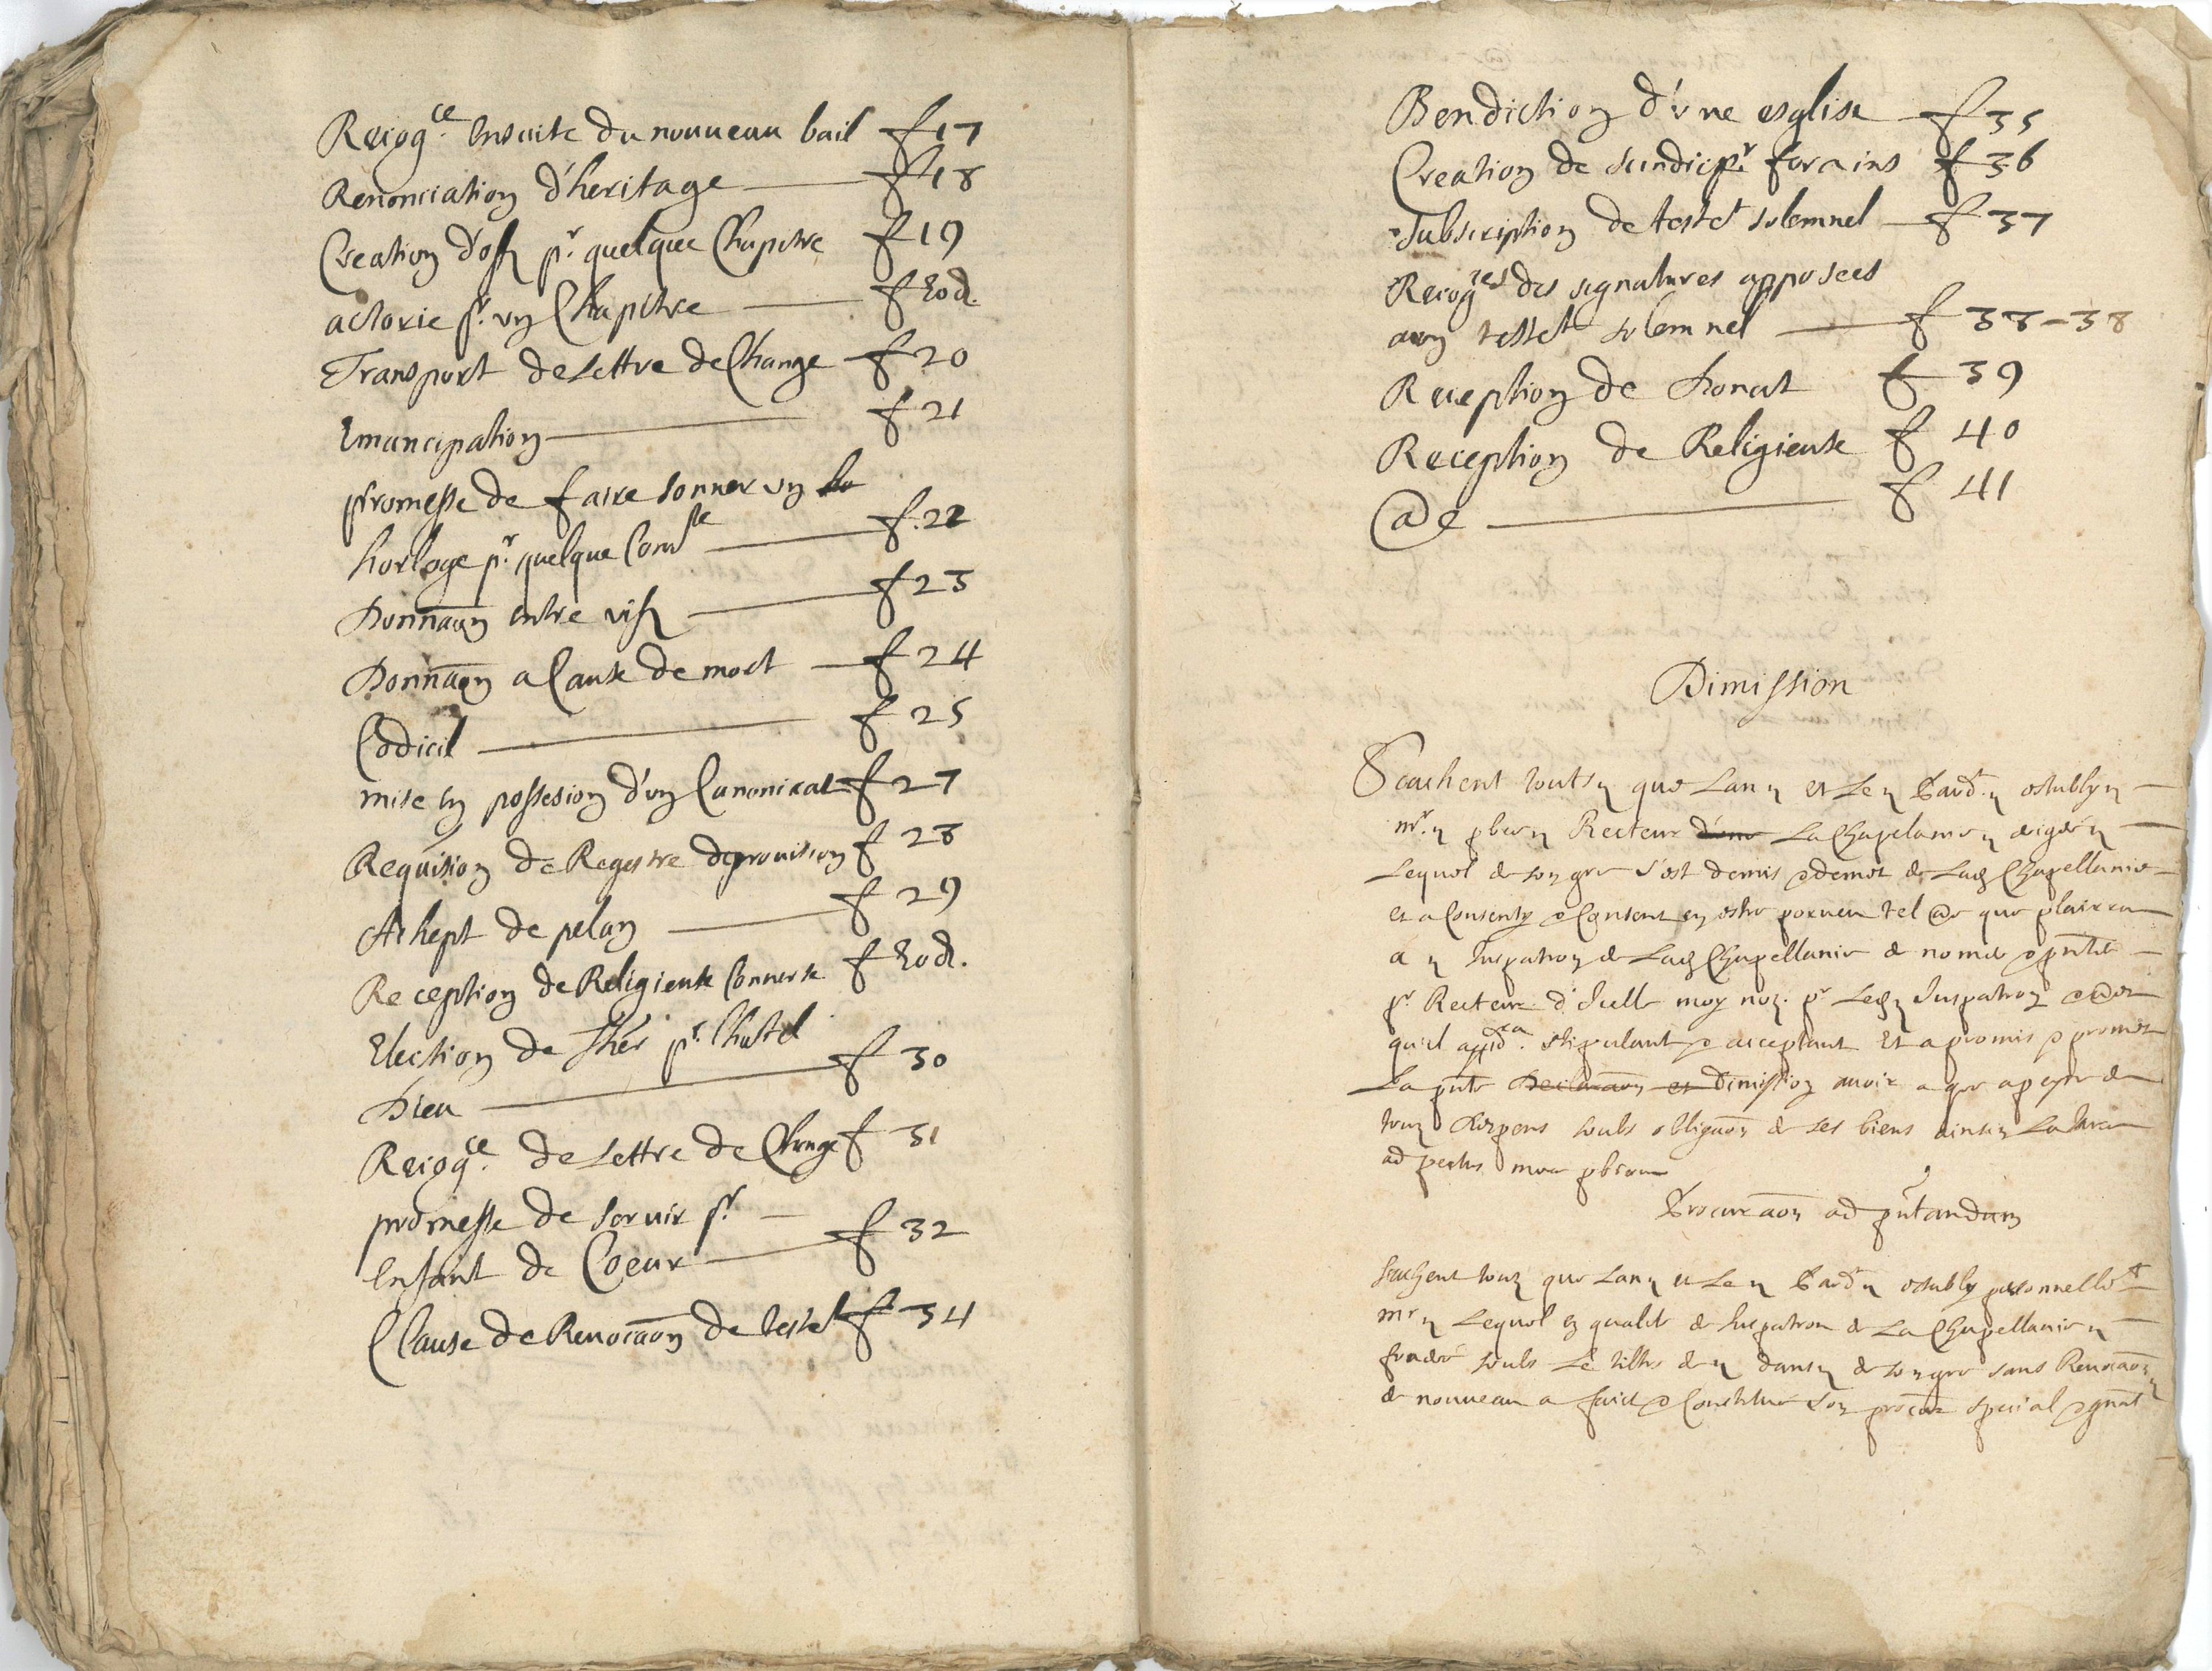 Recog.ce Ensuite du nouueau bail f 17
Renonciation d'heritage f 18
Creation d'off pr. quelque Chapitre f 19
actorie pr. un Chapitre f Eod.
Transport de Lettre de Change f 20
Emancipation f. 21
promesse de faire sonner un
horloge pr. quelque Com.te f. 22
Donnaon entre vifs f 23
Donnaon a Cause de mort f 24
Codicil f 25
mise en possession d'un Canonicat f 27
Requision de Registre de prouision f 28
Achept de pelan f 29
Reception de Religieuse Conuerse f Eod.
Election de pr. l'hostel
Dieu f 30
Recog.ce de Lettre de Change f 31
promesse de seruir pr.
Enfant de Coeur f 32
Clause de Reuocaon de testet f 34
Bendiction d'vne esglise f 35
Creation de scindic pr. forains f 36
Subscription de testet solemnel f 37
Recog.ces des signatures apposees
aun testet solemnel f 38-38
Reception de Donat f 39
Reception de Religieuse f 40
@e f 41
Dimission
Scachent touts que Lan et Le estably
mr. pbre Recteur d'une La Chapelanie erigée
Lequel de son gre s'est demis & demet de Lad Chapellanie
et a Consenty & Consent en estre porueu tel @e que plairra
a Juspatron de Lad Chapellanie de nomer & pnter
pr Recteur d'Icelle moy nore. pr Led Juspatron
qu'il stipulant & acceptant Et a promis & promet
La pnte Declaraon et Dimission auoir a gre a peyne de
tous despens soubs obligaon de ses biens ainsin La Jure
ad pectus more pbrorum
Procuraon ad pntandum
Sachent tous que Lan et Le estably personnellet
mr Lequel en qualite de Juspatron de La Chapellanie
fondée soubs Le tiltre de dans de son gre sans Reuocaon
de nouueau a faict & Constitué son procur special & gnal